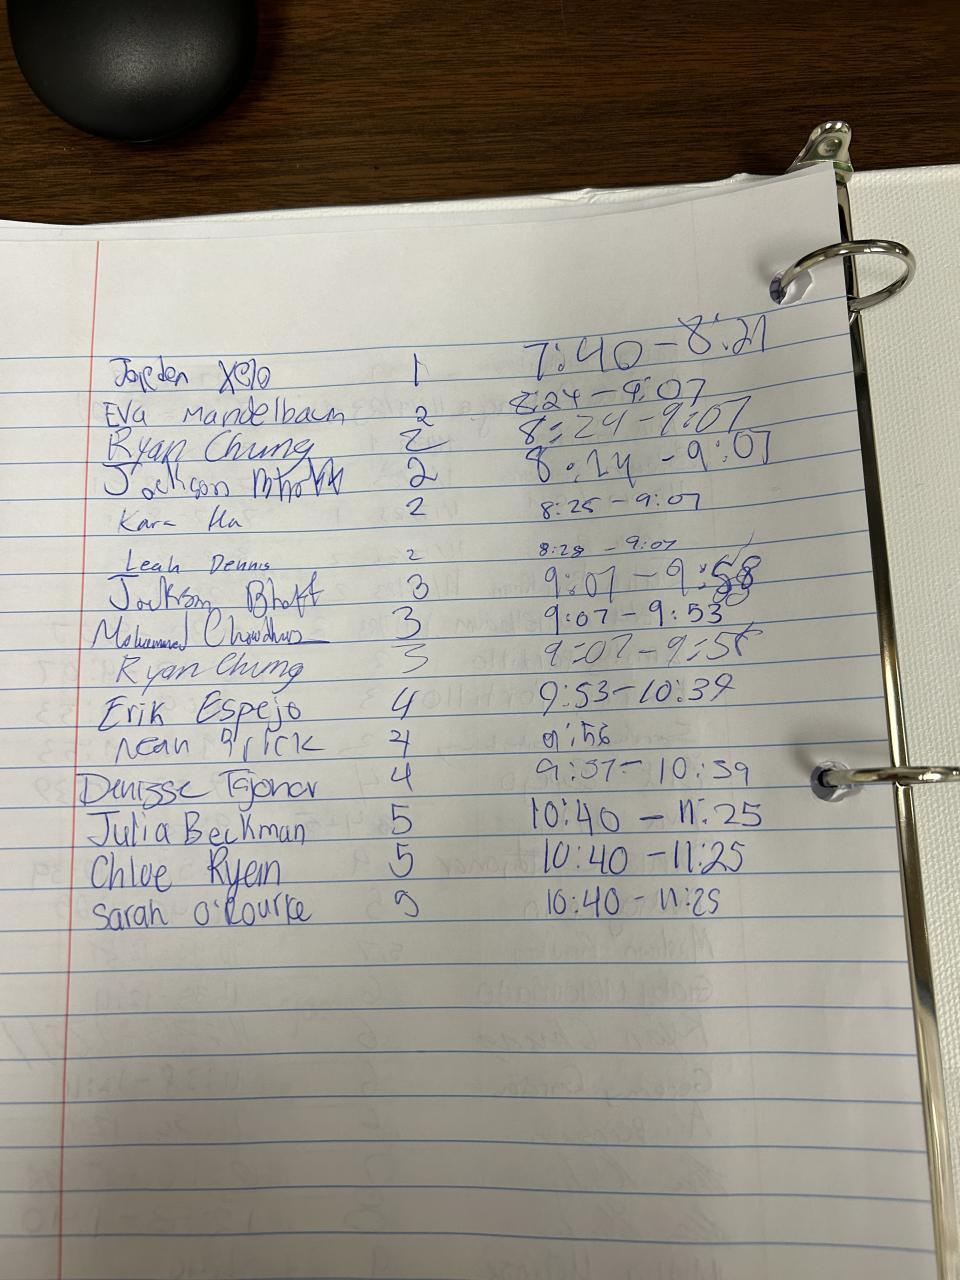 Jorden 1 7:40 - 8:21
Eva Mandelbaum 2 8:24 - 9:07
Ryan Chung 2 8:24 - 9:07
Jackson Bhatt 2 8:24 - 9:07
Kara Ha 2 8:25 - 9:07
Leah Dennis 2 8:28 - 9:07
Jackson Bhatt 3 9:07 - 9:58
Mohammed 3 9:07 - 9:53
Ryan Chung 3 9:07 -
Erik Espejo 4 9:53 - 10:39
4 9:56
Denisse Tajonar 4 9:57 - 10:39
Julia Beckman 5 10:40 - 11:25
Chloe Ryan 5 10:40 - 11:25
Sarah O'Rourke 5 10:40 - 11:25